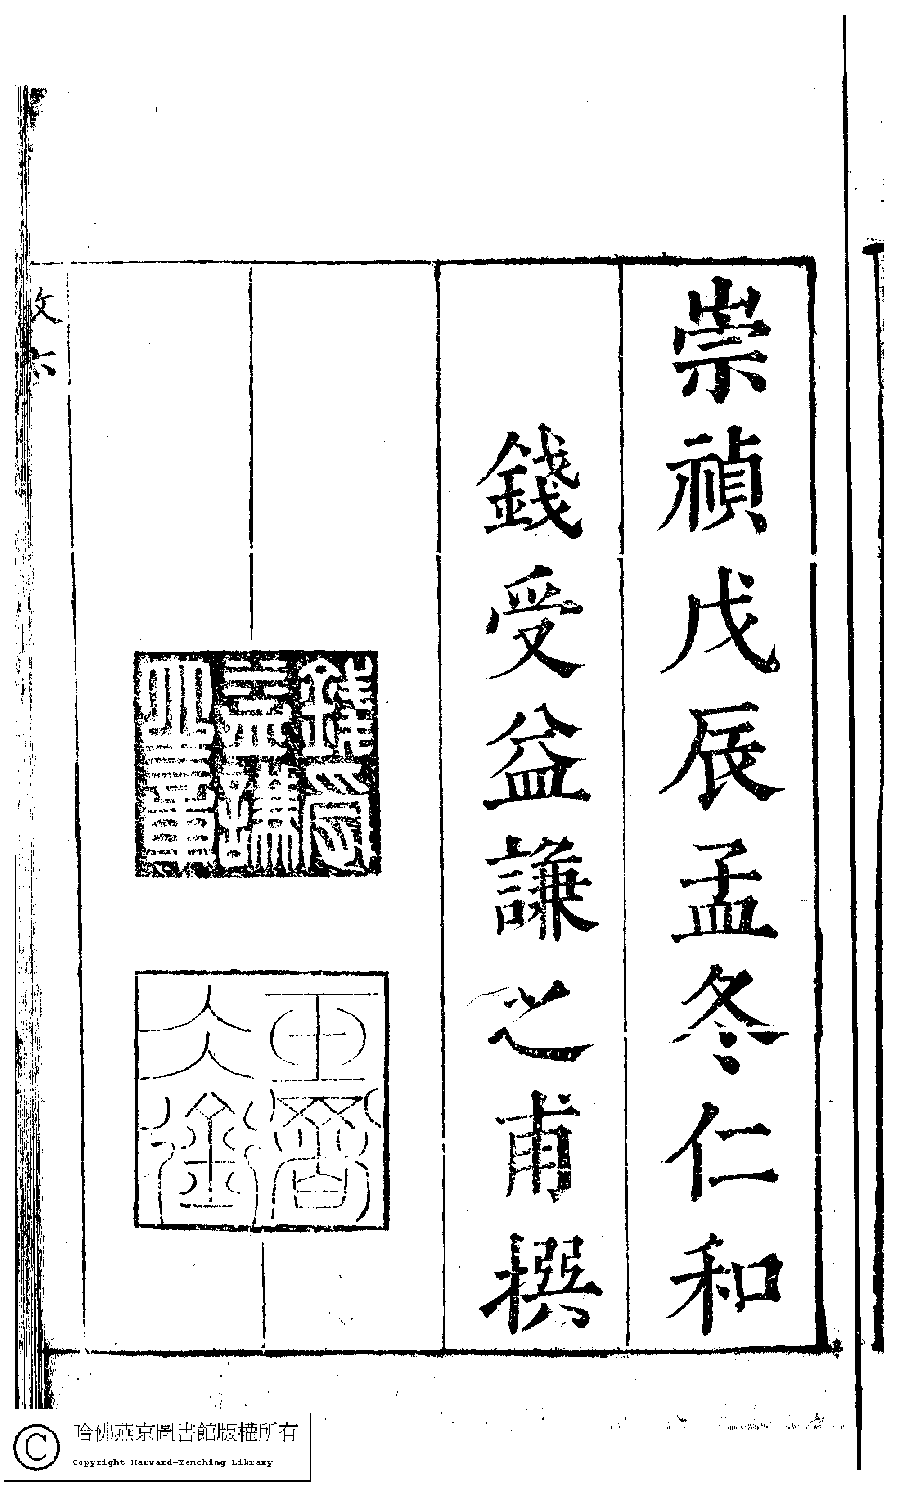 崇禎戊辰孟冬仁和
錢受益謙之甫撰
錢受益謙
文六
哈佛燕京圖書館版權所有
Copyright Harvard-Yenching Library